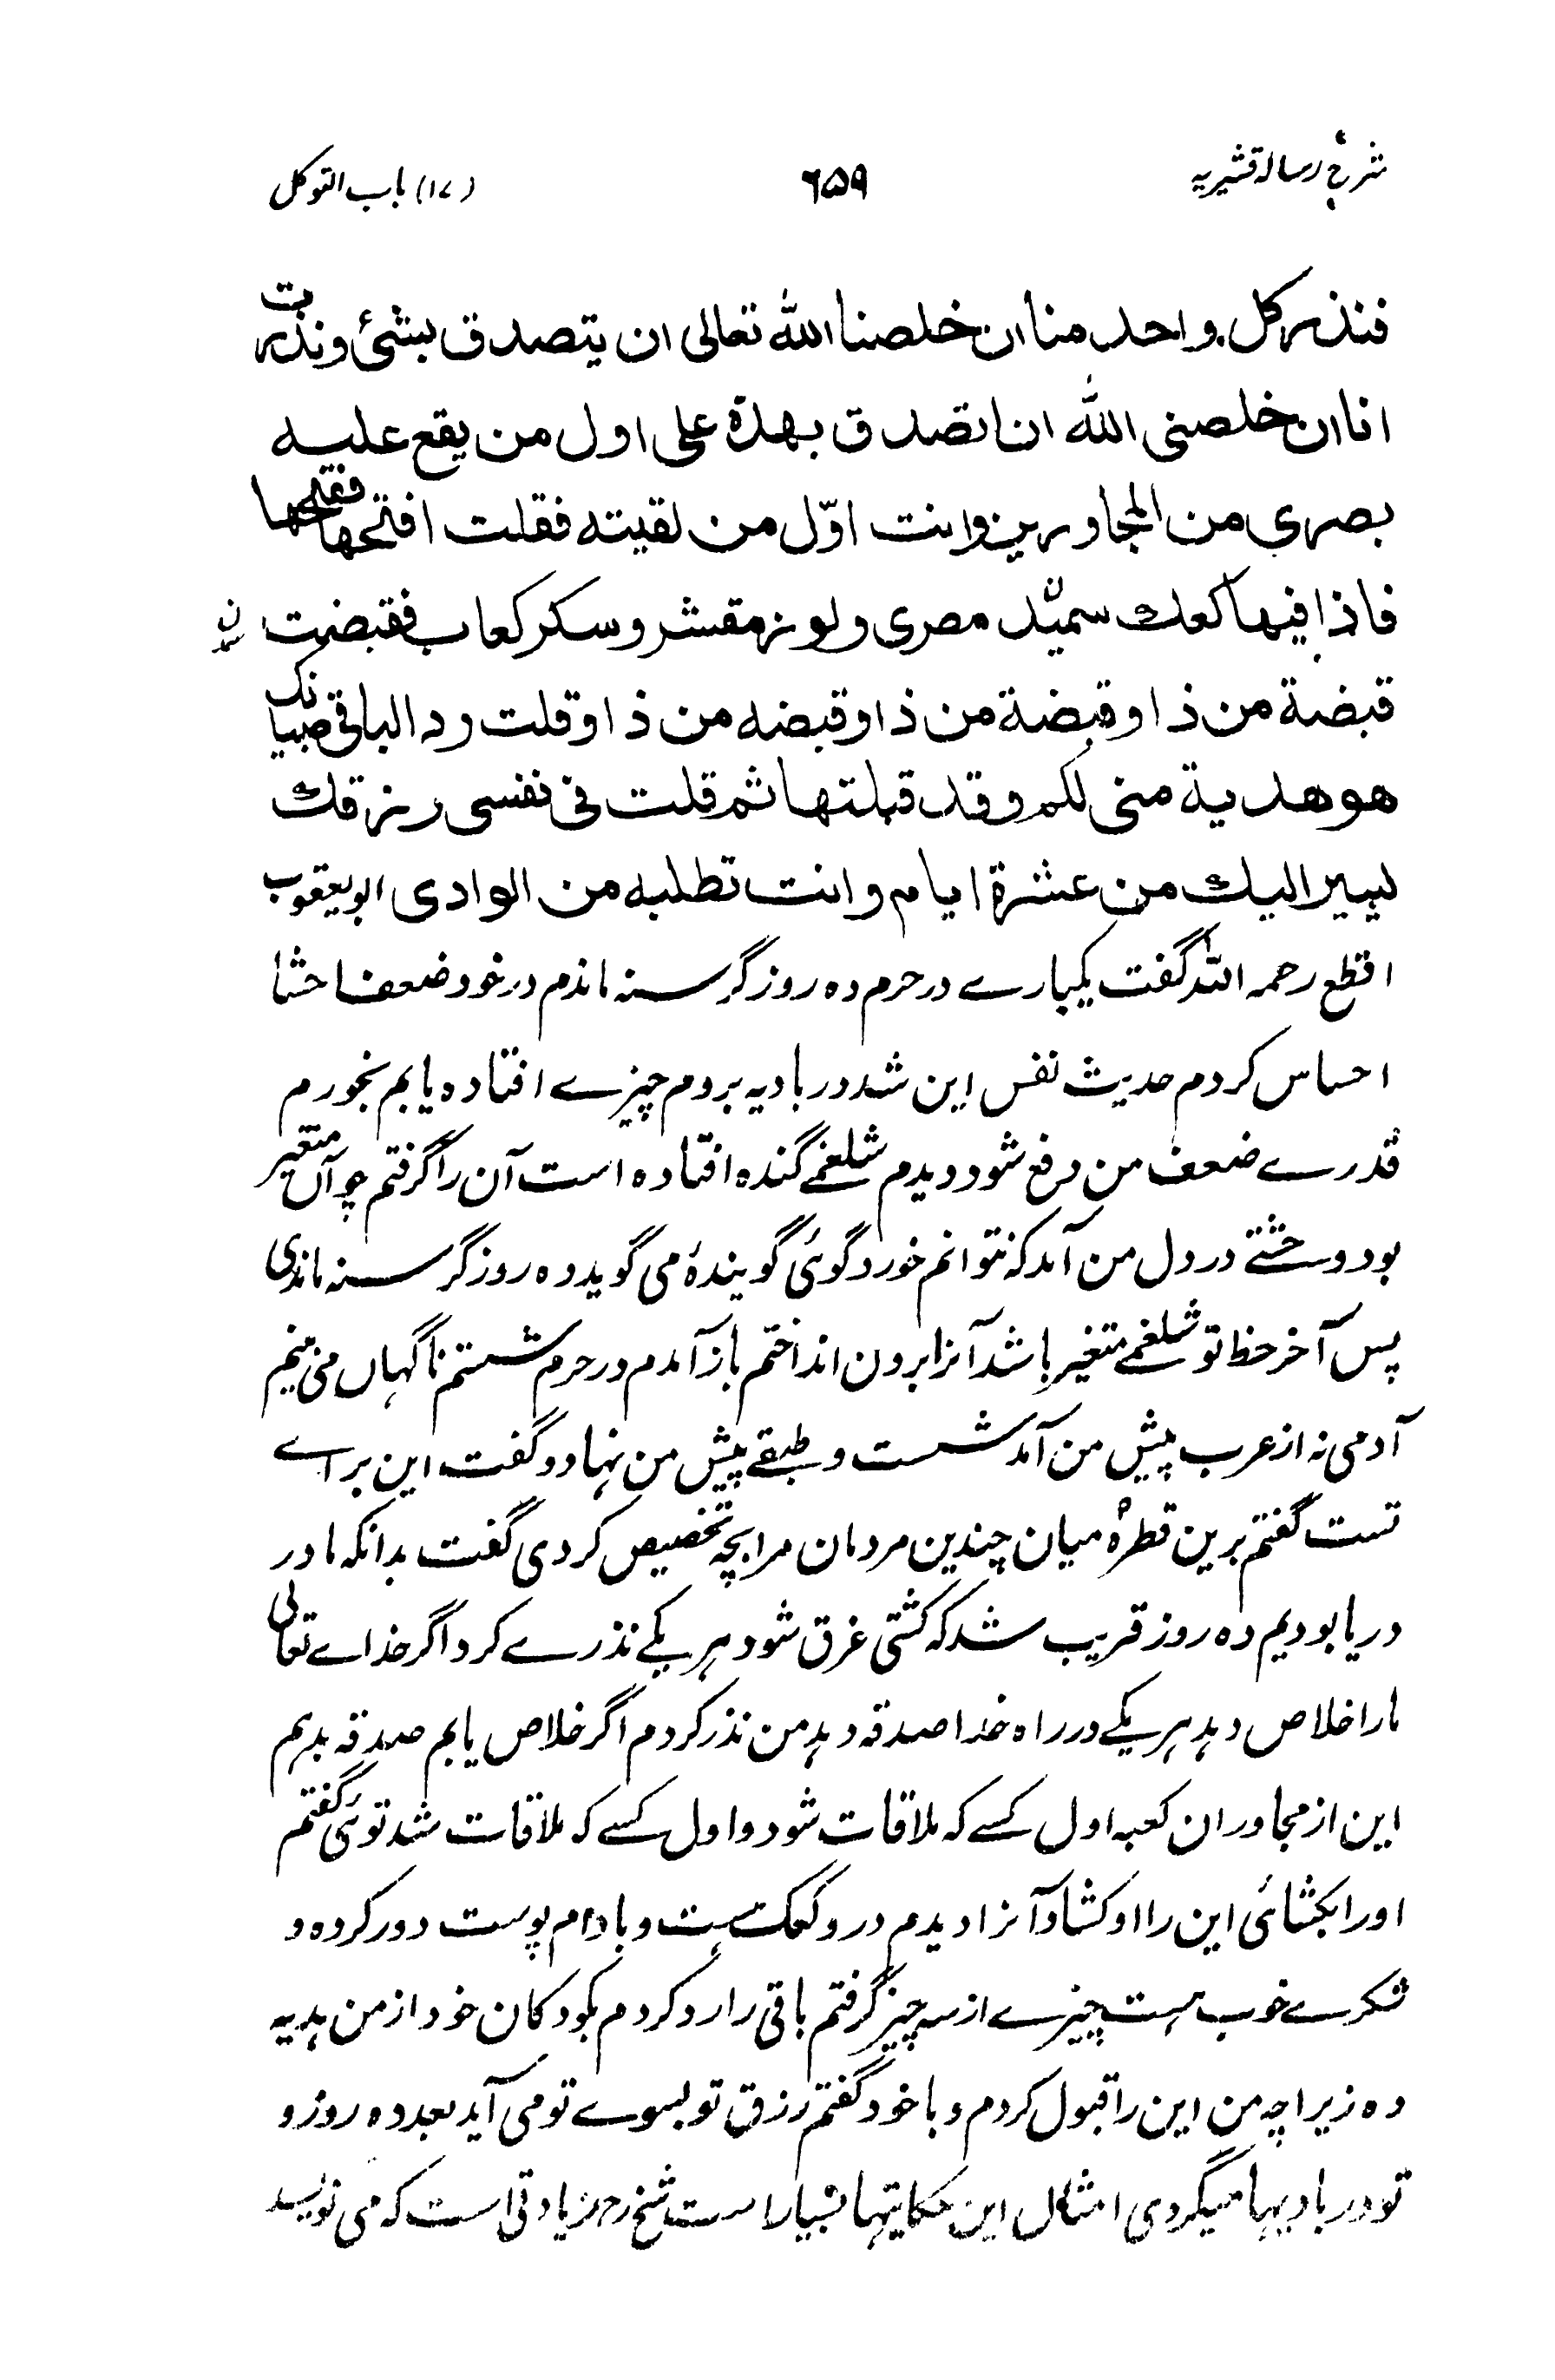 شرح رسالہ قشیریہ ۶۵۹ (۱۷) باب التوکل
فنذر کل واحد منا ان خلصنا اللّٰه تعالی ان یتصدق بشئ ونذرت
انا ان خلصنی اللّٰه ان اتصدق بهذه علی اول من یقع علیه
بصری من المجاورین وانت اوّل من لقیته فقلت افتحها ففتحها
فاذا فیها کعك سمید مصری ولوز مقشر وسکر کعاب فقبضت
قبضة من ذا وقبضة من ذا وقبضه من ذا وقلت رد الباقی صبیانك
هو هدیة منی لکم وقد قبلتها ثم قلت فی نفسی رزقك
یسیر الیك من عشرة ایام وانت تطلبه من الوادی ابو یعقوب
اقطع رحمہ اللّٰہ گفت یکبارے در حرم دہ روز گرسنہ ماندم در خود ضعفا حشا
احساس کردم حدیث نفس این شد در بادیہ بروم چیزے افتادہ یابم بخورم
قدرے ضعف من رفع شود دیدم شلغمے گندہ افتادہ است آن را گرفتم چو آں متغیر
بود وحشتے در دل من آمد کہ نتوانم خورد گوئی گویندۂ می گوید دہ روز گرسنہ ماندی
پس آخر حظ تو شلغمے متغیر باشد آنرا برون انداختم باز آمدم در حرم شستم ناگہاں می بینم
آدمی نہ از عرب پیش من آمد شست و طبقے پیش من نہاد و گفت این براے
تست گفتم برین قطرہ میان چندین مردمان مرا بچہ تخصیص کردی گفت بدانکہ ما در
دریا بودیم دہ روز قریب شد کہ کشتی غرق شود ہر یکے نذرے کرد اگر خداے تعالی
مارا خلاص دہد ہر یکے در راہ خدا صدقہ دہد من نذر کردم اگر خلاص یابم صدقہ بدہم
این از مجاوران کعبہ اول کسے کہ ملاقات شود و اول کسے کہ ملاقات شد توئی گفتم
اورا بکشائی این را او کشاد آنرا دیدم درو کعک ہست و بادام پوست دور کردہ و
شکرے خوب ہست چیزے از سہ چیز گرفتم باقی را رد کردم بکودکان خود از من ہدیہ
دہ زیراچہ من این را قبول کردم و با خود گفتم رزق تو بسوے تو می آید بعد دہ روز و
تو در بادیہا میگردی امثال این حکایتہا بسیار است شیخ رحمہ زیادتی است کہ می نویسد